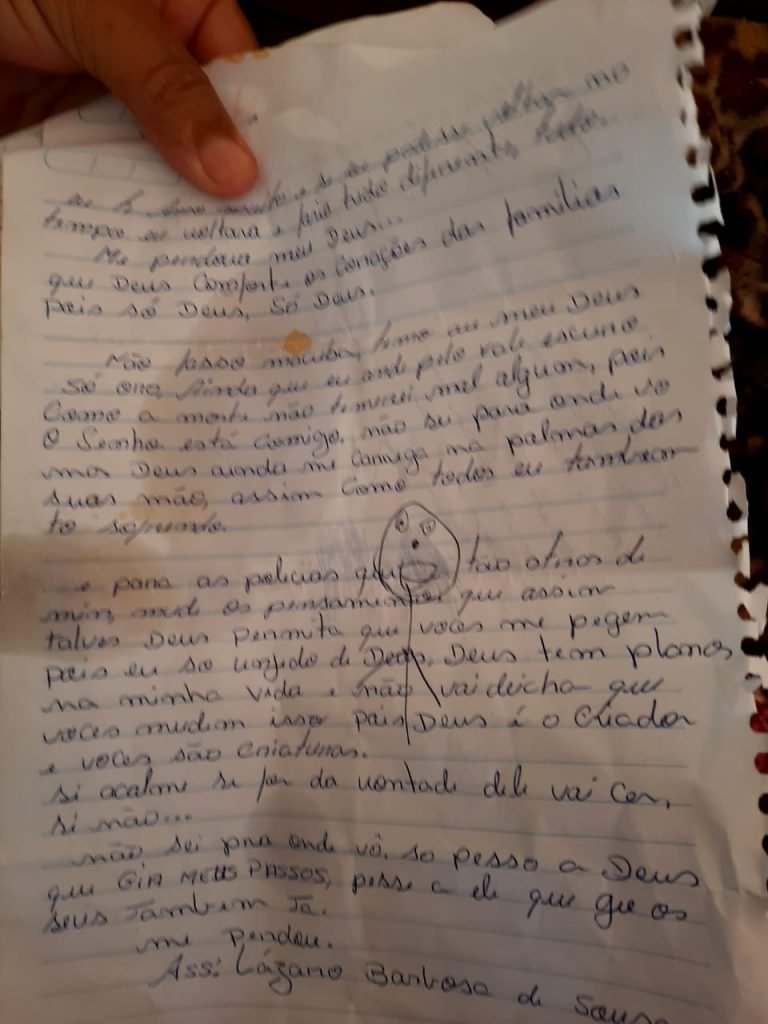 eu te amo muito e se eu podesse voltar no
tempo eu voltava e faria tudo diferente, tudo.
Me perdoua meu Deus...
que Deus Comforte os Corações das famílias
pois só Deus, Só Deus.
Não fasso macuba, temo au meu Deus
Só ore, Ainda que eu ande pelo vale escuro
Como a morte não temerei mal algum, pois
O Senhor está Comigo. não sei para onde vo
mas Deus ainda me Carrega na palmas das
suas mão, assim Como todos eu tambem
to sofrendo.
... e para as policias que tão atras de
mim, mude os pensamentos que assim
talves Deus permita que voces me pegem
pois eu so unjido de Deus, Deus tem planos
na minha vida e não vai deicha que
voces mudem isso pois Deus é o Criador
e voces são Criaturas.
si acalme si for da vontade dele vai Cer,
si não...
não sei pra onde vô. so pesso a Deus
que GIA MEUS PASSOS, pesse a ele que gie os
seus Tambem Ta.
me perdou.
Ass: Lázaro Barbosa de Sousa